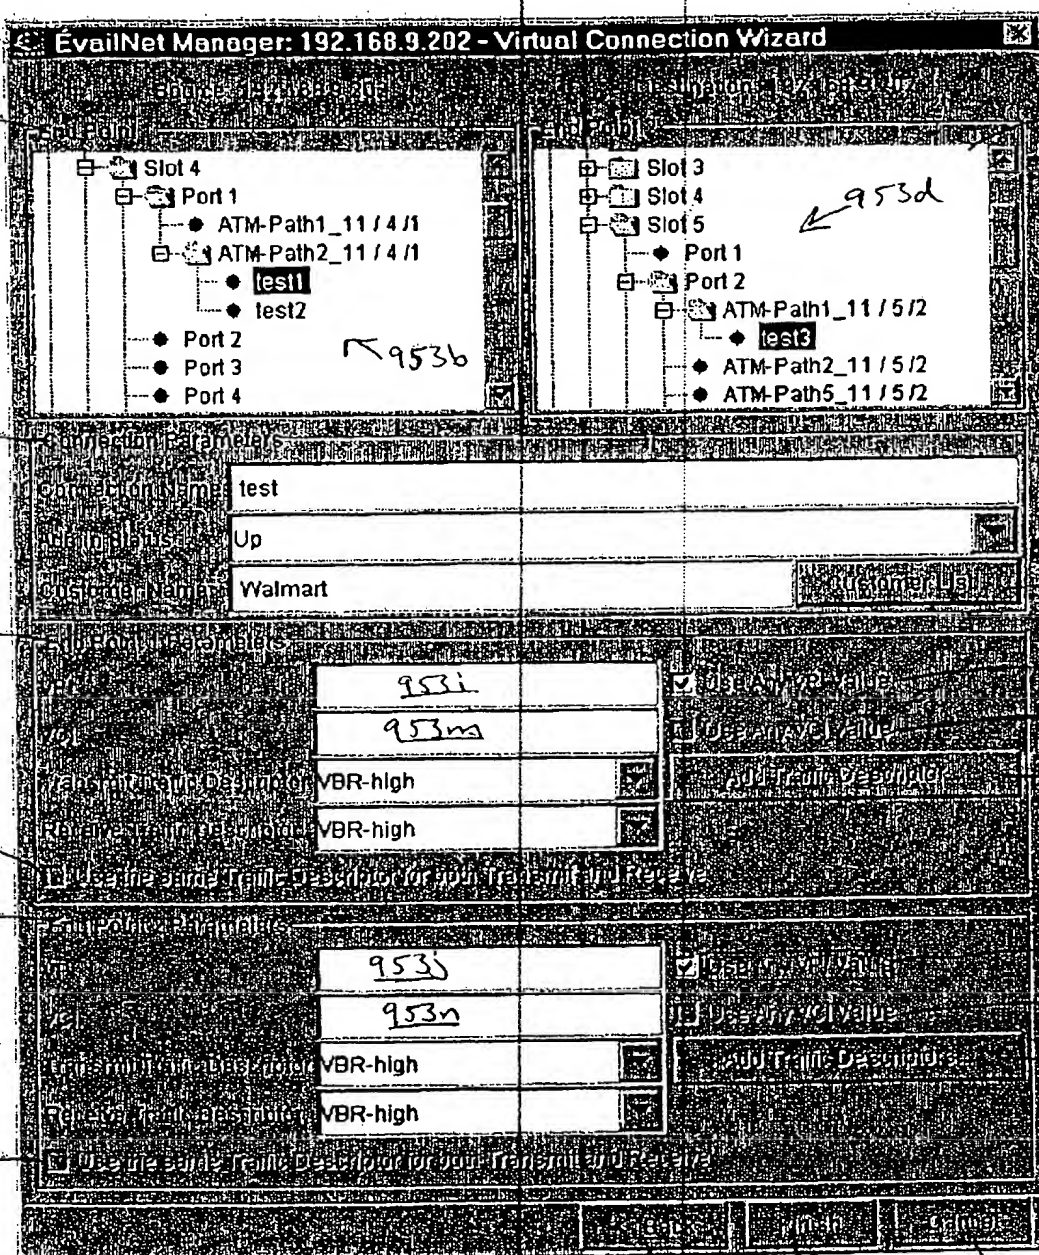 ÉvailNet Manager: 192.168.9.202 - Virtual Connection Wizard
Source: 192.168.9.202
End Point
End Point
Slot 4
Port 1
ATM-Path1_11 / 4 /1
ATM-Path2_11 / 4 /1
test1
test2
Port 2
Port 3
Port 4
953b
Slot 3
Slot 4
Slot 5
Port 1
Port 2
ATM-Path1_11 / 5 /2
test3
ATM-Path2_11 / 5 /2
ATM-Path5_11 / 5 /2
953d
Connection Parameters
Connection Name test
Admin Status Up
Customer Name Walmart Customer List
Parameters
VPI 953i Use Any VPI Value
VCI 953m Use Any VCI Value
Transmit Traffic Descriptor VBR-high Add Traffic Descriptor
Receive Traffic Descriptor VBR-high
Use the same Traffic Descriptor for both Transmit and Receive
End Point 2 Parameters
953j Use Any VPI Value
VCI 953n Use Any VCI Value
Transmit Traffic Descriptor VBR-high Add Traffic Descriptors
Receive Traffic Descriptor VBR-high
Use the same Traffic Descriptor for both Transmit and Receive
Back Finish Cancel